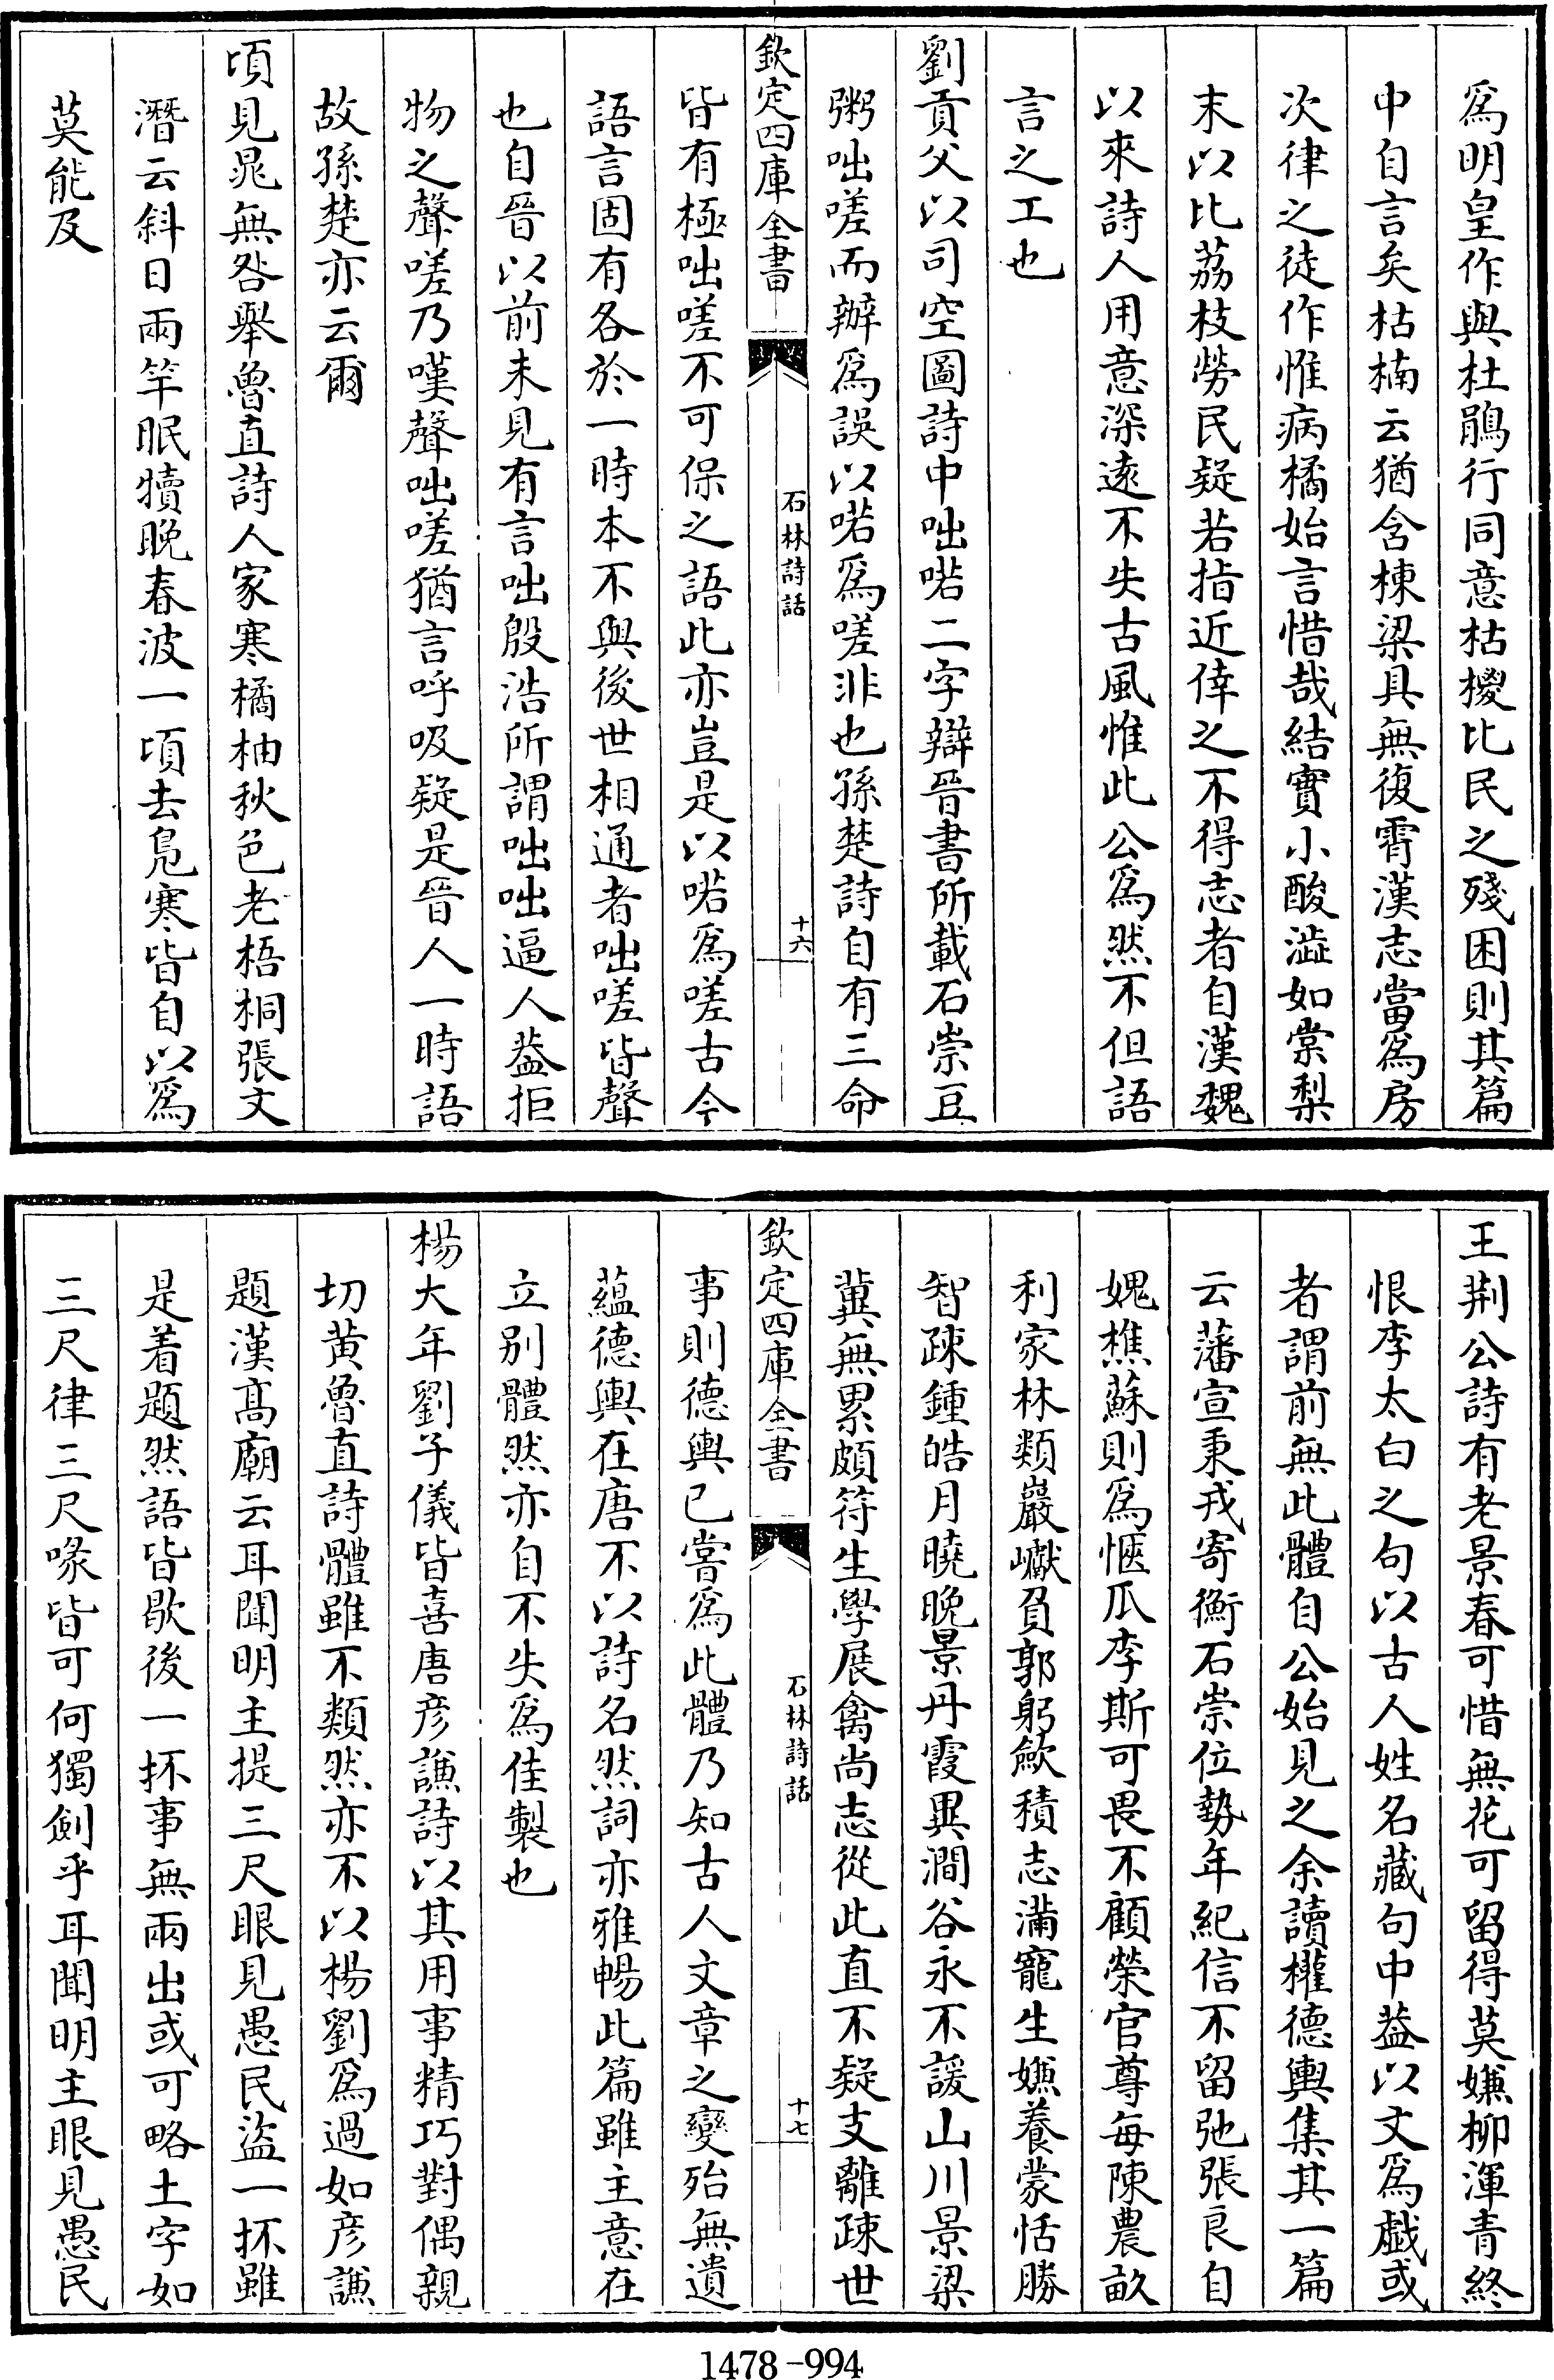 爲明皇作與杜鵑行同意枯椶比民之殘困則其篇
中自言矣枯楠云猶含棟梁具無復霄漢志當爲房
次律之徒作惟病橘始言惜哉結實小酸澁如棠梨
末以比荔枝勞民疑若指近倖之不得志者自漢魏
以來詩人用意深遠不失古風惟此公爲然不但語
言之工也
劉貢父以司空圖詩中咄喏二字辯晉書所載石崇豆
粥咄嗟而辦爲誤以喏爲嗟非也孫楚詩自有三命
欽定四庫全書
石林詩話
十六
皆有極咄嗟不可保之語此亦豈是以喏爲嗟古今
語言固有各於一時本不與後世相通者咄嗟皆聲
也自晉以前未見有言咄殷浩所謂咄咄逼人葢拒
物之聲嗟乃嘆聲咄嗟猶言呼吸疑是晉人一時語
故孫楚亦云爾
頃見晁無咎舉魯直詩人家寒橘柚秋色老梧桐張文
潛云斜日兩竿眠犢晚春波一頃去鳬寒皆自以爲
莫能及
王荆公詩有老景春可惜無花可留得莫嫌柳渾青終
恨李太白之句以古人姓名藏句中葢以文爲戯或
者謂前無此體自公始見之余讀權德輿集其一篇
云藩宣秉戎寄衡石崇位勢年紀信不留弛張良自
媿樵蘇則爲愜瓜李斯可畏不顧榮官尊每陳農畝
利家林類巖巘負郭躬歛積志滿寵生嫌養蒙恬勝
智疎鍾皓月曉晚景丹霞異澗谷永不諼山川景梁
冀無累頗符生學展禽尚志從此直不疑支離疎世
欽定四庫全書
石林詩話
十七
事則德輿已嘗爲此體乃知古人文章之變殆無遺
蘊德輿在唐不以詩名然詞亦雅暢此篇雖主意在
立別體然亦自不失爲佳製也
楊大年劉子儀皆喜唐彥謙詩以其用事精巧對偶親
切黃魯直詩體雖不類然亦不以楊劉爲過如彥謙
題漢髙廟云耳聞明主提三尺眼見愚民盜一抔雖
是着題然語皆歇後一抔事無兩出或可略土字如
三尺律三尺喙皆可何獨劍乎耳聞明主眼見愚民
1478-994